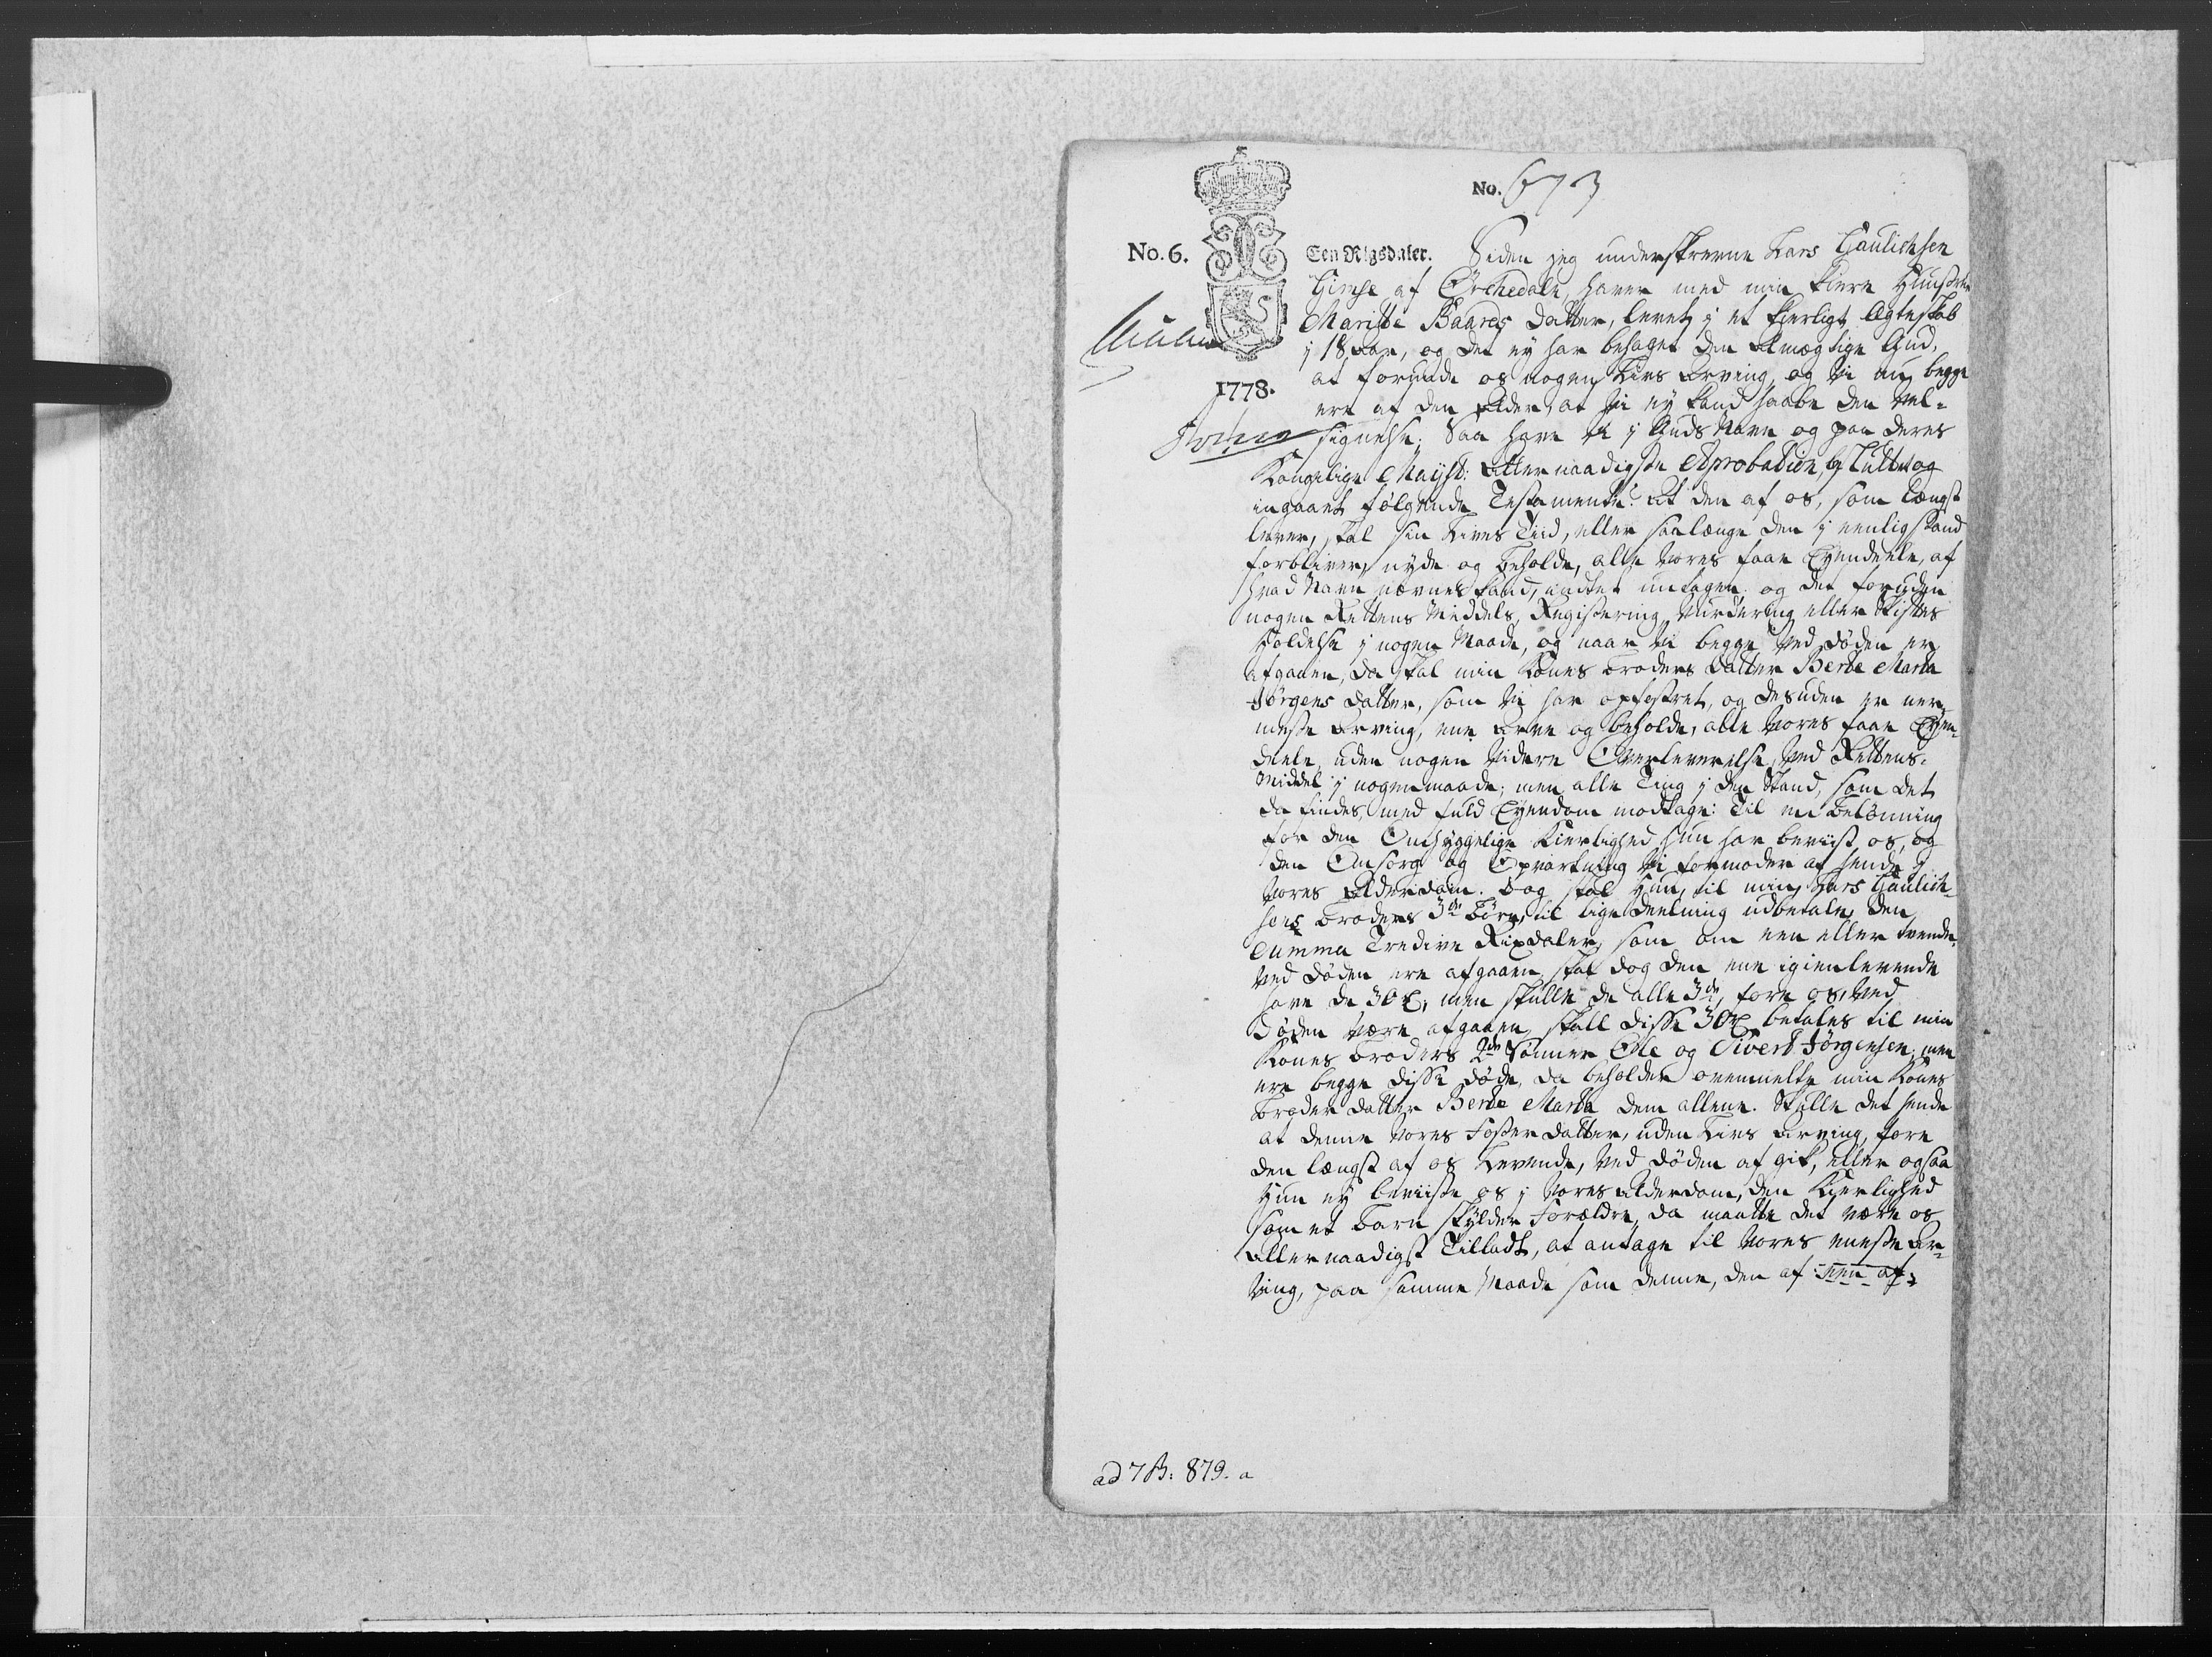 No. 573
No. 6.
Een Rigsdaler. Siden jeg underskrevne Lars Gaulichsen
Gimse af Orchedale, haver med min kiere Hustrue
Maritte Baards datter, levet j et kierligt Ægteskab
j 18 aar, og det ey har behaget den Almægtige Gud,
at forunde os nogen Livs Arving, og vi nu begge
1778.
ere af den Alder, at vi ey kand haabe den Vel-
signelse; Saa have vi j Guds Navn og paa deres
Kongelige Mayst: Allernaadigste Aprobation, og
indgaaet følgende Testamente: At den af os, som længst
lever, skal sin Livs Tiid, eller saalænge den j eenlig Stand
forbliver, nyde og beholde, alle vores faae Eyendeele, af
hvad Navn nævnes kand, indtet undtagen og det foruden
nogen Rettens Middels, Registering, Vurdering eller Skiftes
holdelse j nogen Maade, og naar vi begge ved døden er
afgaaen, da skal min Kones broders datter Berte Marta
Jörgens datter, som vi har opfostret, og desuden er ner-
meste Arving, ene Arve og beholde, alle vores faae Eyen-
deele, uden nogen videre Overleverelse, ved Rettens-
Middel j nogenmaade; men alle Ting j den Stand, som det
da findes, med fuld Eyendom modtage: Til en belönning
for den Omhyggelige Kierlighed hun har beviist os, og
den Omsorg og Opvartning vi formoder af hende j
vores Alderdom. Dog skal Hun, til min, Lars Gaulich-
sens broders 3de Börn, til lige deelning udbetale, den
Summa Tredive Rixdaler, som om een eller tvende,
ved døden ere afgaaen, skal dog den ene igienlevende
have de 30 Rd, men skulle de alle 3de, fore os, ved
Døden være afgaaen, skall disse 30 Rd betales til min
Kones broders 2de Sönner Ole og Sivert Jörgensen; men
ere begge disse døde, da beholder ovenmelte min Kones
broder datter Berte Marta dem allene. Skulle det hende
at denne vores Foster datter, uden Livs Arving, fore
den længst af os Levende, ved døden af gik, eller ogsaa
Hun ey beviiste os j vores Alderdom, den Kierlighed
som et barn skylder Forældre, da maatte det være os
Allernaadigst Tilladt, at antage til vores eneste Ar-
ving, paa samme Maade som denne, den af
ad 7 B: 879. a